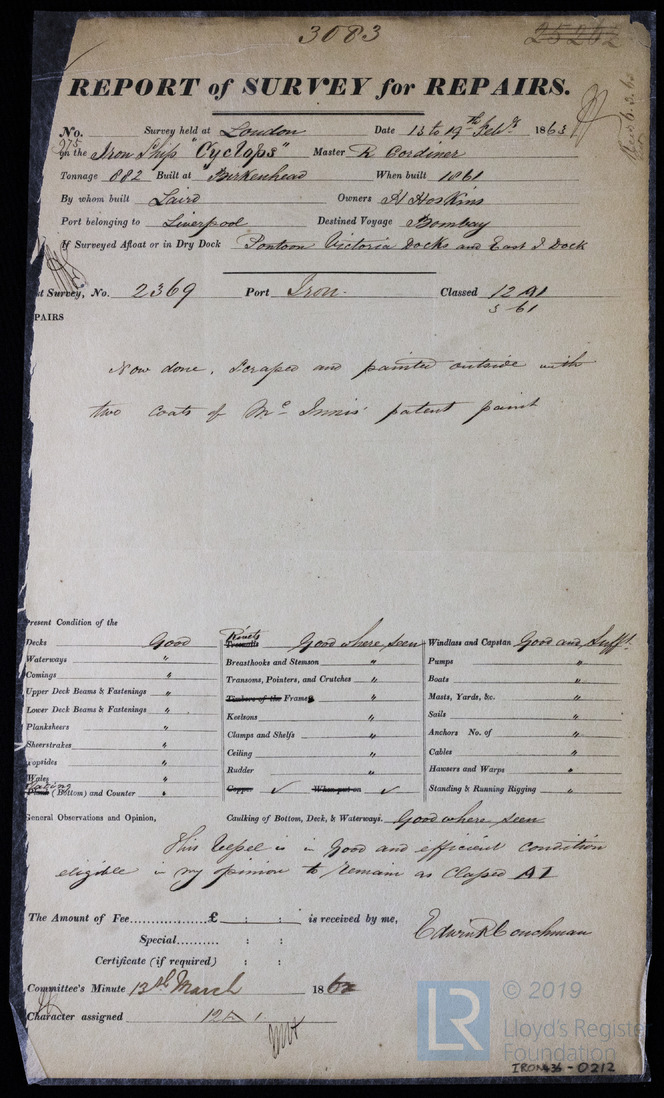 3083
25262
REPORT of SURVEY for REPAIRS.
No. Survey held at London Date 13 to 19th Feby 1863
on the Iron Ship "Cyclops" Master R Cordiner
Tonnage 882 Built at Birkenhead When built 1861
By whom built Laird Owners A Hoskins
Port belonging to Liverpool Destined Voyage Bombay
If Surveyed Afloat or in Dry Dock Pontoon Victoria Docks and East I Dock
st Survey, No. 2369 Port Iron. Classed 12 A1
3-61
PAIRS
Now done. Scraped and painted outside with
two coats of Mc Innis' patent paint
Present Condition of the
Decks Good Rivets Good where seen Windlass and Capstan Good and Sufft.
Waterways " Breasthooks and Stemson " Pumps "
Comings " Transoms, Pointers, and Crutches " Boats "
Upper Deck Beams & Fastenings " Timbers of the Frames " Masts, Yards, &c. "
Lower Deck Beams & Fastenings " Keelsons " Sails "
Planksheers " Clamps and Shelfs " Anchors No. of "
Sheerstrakes " Ceiling " Cables "
Topsides " Rudder " Hawsers and Warps "
Wales " Copper ✓ When put on ✓ Standing & Running Rigging "
Plating (Bottom) and Counter "
General Observations and Opinion, Caulking of Bottom, Deck, & Waterways. Good where seen
This Vessel is in Good and efficient condition
eligible in my opinion to remain as Classed A1
The Amount of Fee............... £ : : is received by me,
Special.......... : :
Edwin R Couchman
Certificate (if required) : :
Committee's Minute 13th March 186
Character assigned 12 A 1
LR © 2019
Lloyd's Register
Foundation
IRON436-0212